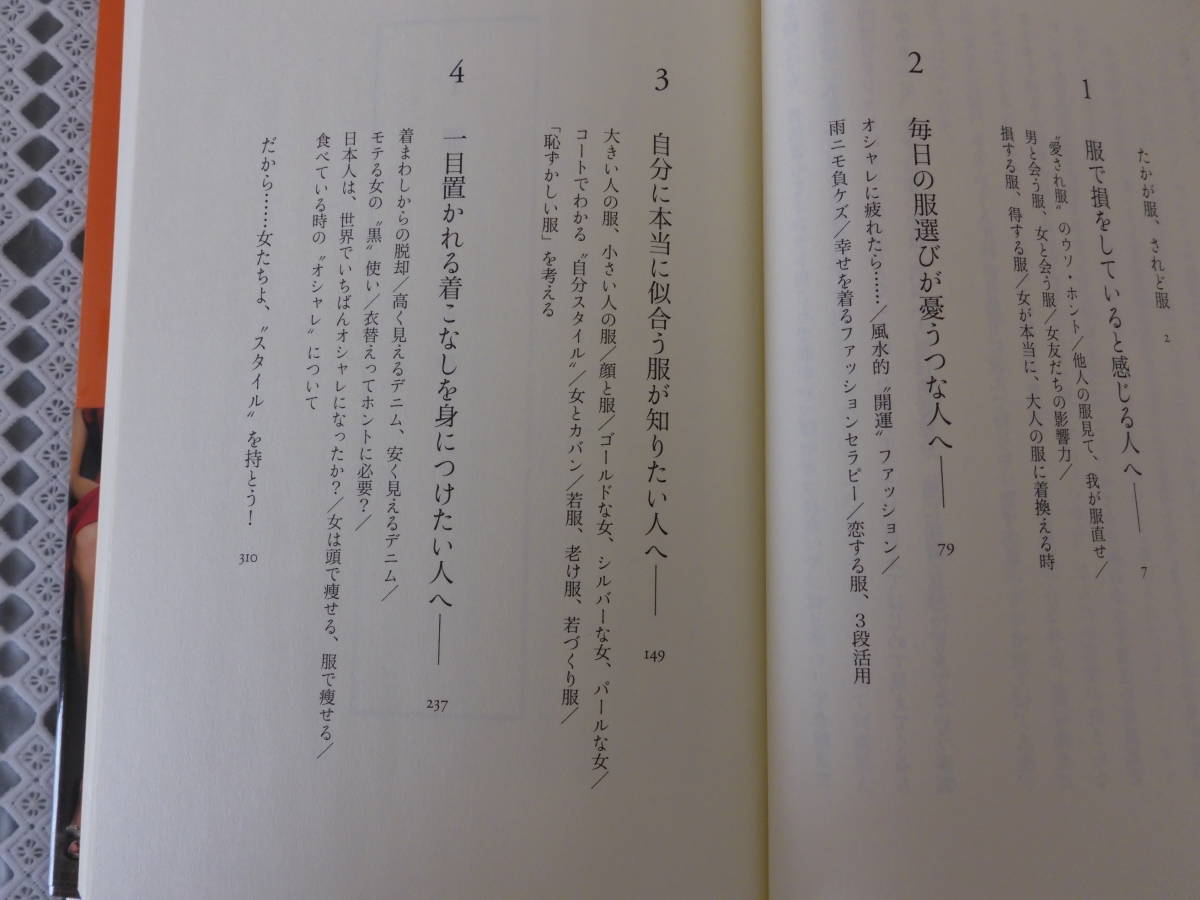 たかが服、されど服 2
1 服で損をしていると感じる人へ―― 7
〝愛され服〟のウソ・ホント／他人の服見て、我が服直せ／
男と会う服、女と会う服／女友だちの影響力／
損する服、得する服／女が本当に、大人の服に着換える時
2 毎日の服選びが憂うつな人へ―― 79
オシャレに疲れたら……／風水的〝開運〟ファッション／
雨ニモ負ケズ／幸せを着るファッションセラピー／恋する服、3段活用
3 自分に本当に似合う服が知りたい人へ―― 149
大きい人の服、小さい人の服／顔と服／ゴールドな女、シルバーな女、パールな女／
コートでわかる〝自分スタイル〟／女とカバン／若服、老け服、若づくり服／
「恥ずかしい服」を考える
4 一目置かれる着こなしを身につけたい人へ―― 237
着まわしからの脱却／高く見えるデニム、安く見えるデニム／
モテる女の〝黒〟使い／衣替えってホントに必要？／
日本人は、世界でいちばんオシャレになったか？／女は頭で痩せる、服で痩せる／
食べている時の〝オシャレ〟について
だから……女たちよ、〝スタイル〟を持とう！ 310